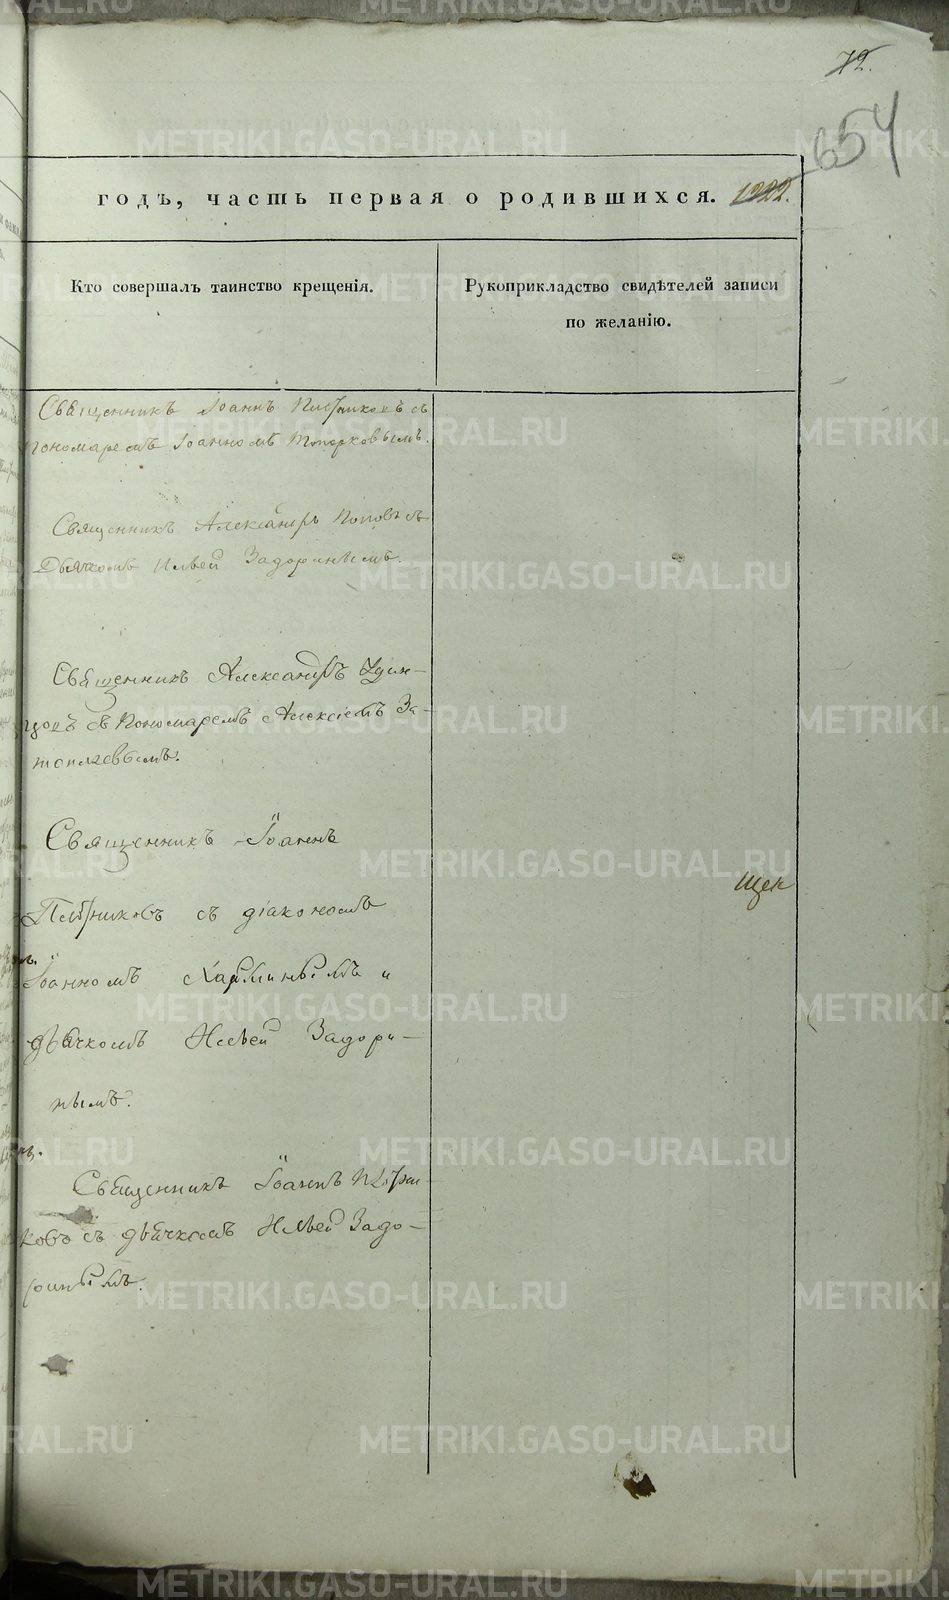 72.
654
годъ, часть первая о родившихся. 1222.
Кто совершалъ таинство крещенія.
Рукоприкладство свидѣтелей записи
по желанію.
Священникъ Іоаннъ съ
пономаремъ Іоанномъ Топорковымъ.
Священникъ Александръ Поповъ съ
Дьячкомъ Ильей Задоринымъ.
Священникъ Александръ Удин-
цовъ съ Пономаремъ Алексіемъ За-
топляевымъ.
Священникъ Іоаннъ
съ діакономъ
Іоанномъ и
дьячкомъ Ильей Задори-
нымъ.
Священникъ Іоаннъ
ковъ съ дьячкомъ Ильей Задо-
ринымъ.
щен
METRIKI.GASO-URAL.RU